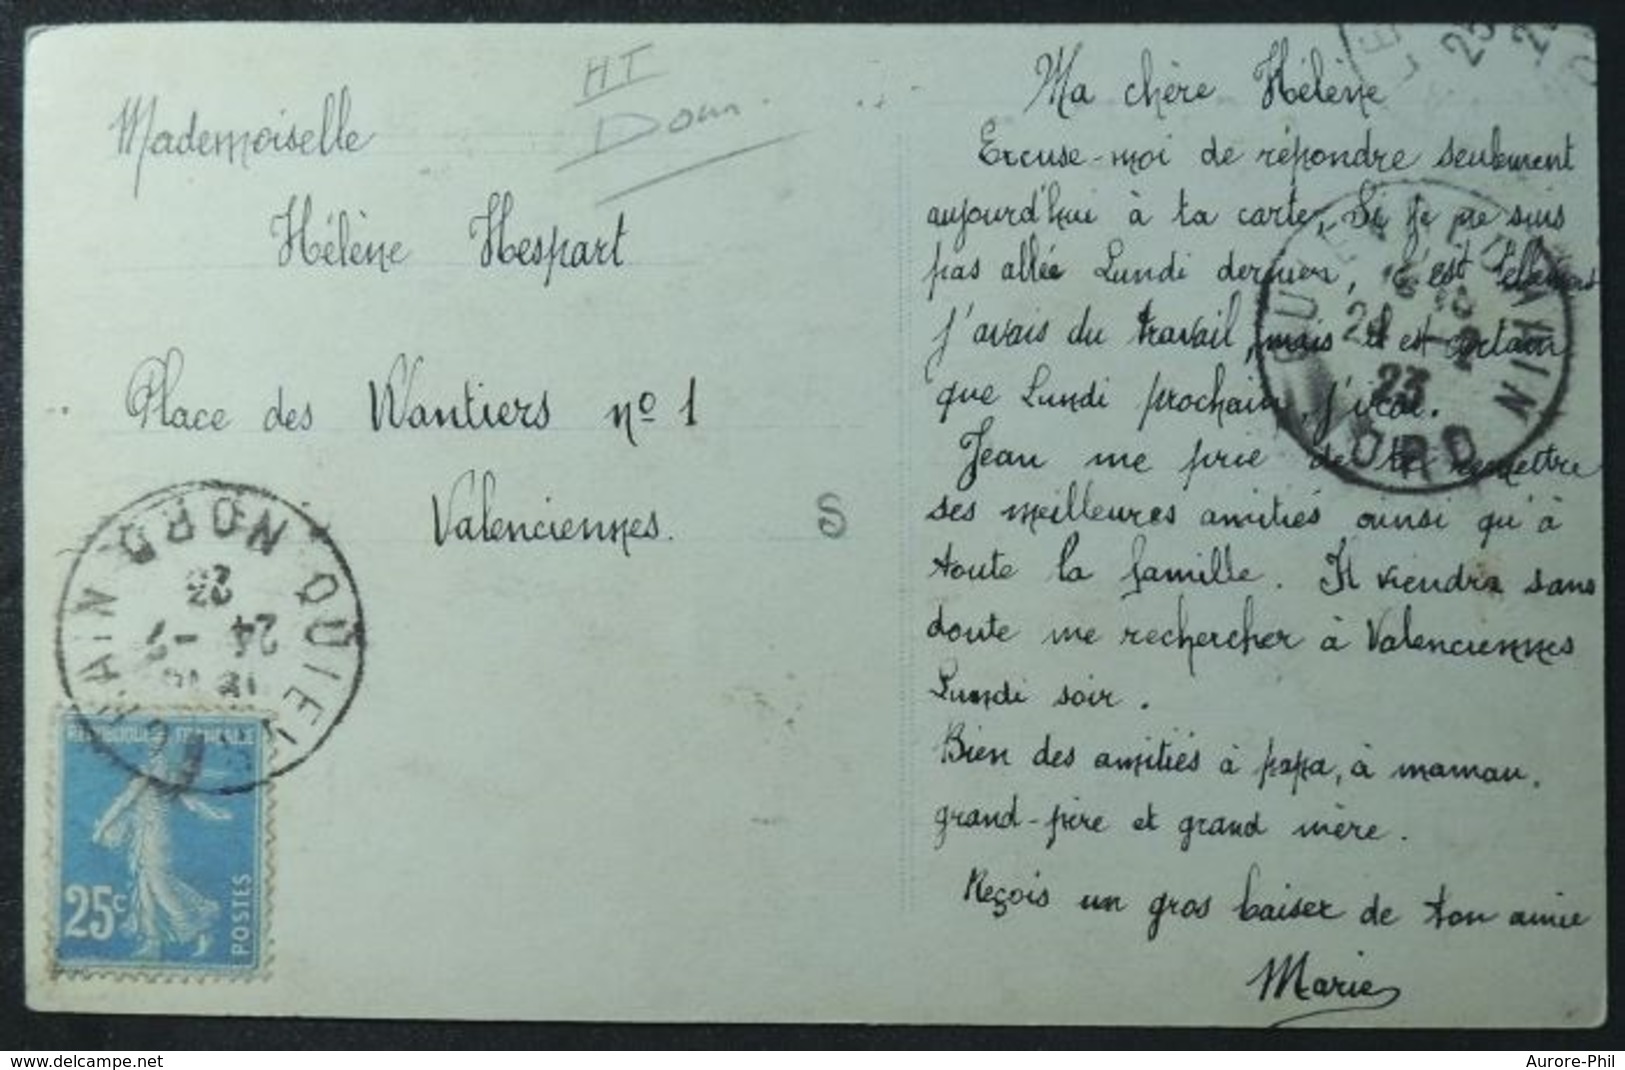 HI
Doun.
Mademoiselle
Hélène Hespart
Place des Wantiers nº 1
Valenciennes.
S
NORD QUIÉVRECHAIN
24 - 7
23
REPUBLIQUE FRANÇAISE
25c
POSTES
Ma chère Hélène
Excuse-moi de répondre seulement
aujourd'hui à ta carte, Si je ne suis
pas allée Lundi dernier, c'est tellement
j'avais du travail, mais il est certain
que Lundi prochain, j'irai.
Jean me prie de te remettre
ses meilleures amitiés ainsi qu'à
toute la famille. Il viendra sans
doute me rechercher à Valenciennes
Lundi soir.
Bien des amitiés à papa, à maman.
grand-père et grand mère.
Reçois un gros baiser de ton amie
Marie
www.delcampe.net
Aurore-Phil